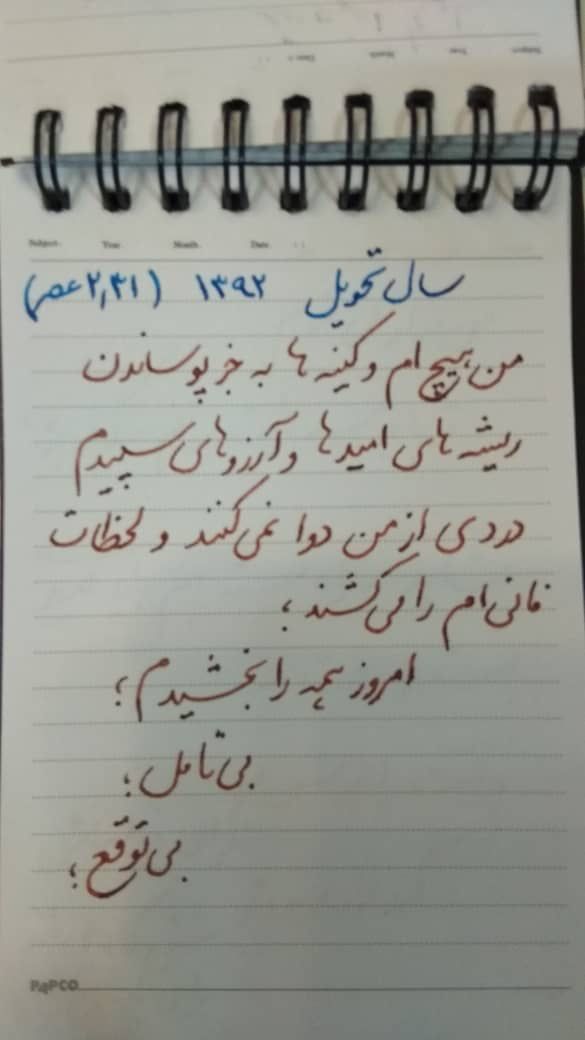 Subject. Year. Month. Date.
سال تحویل ۱۳۹۲ (۲,۳۱ عصر)
من هیچ ام و کینه ها به جز پوساندن
ریشه های امیدها و آرزوهای سپیدم
دردی از من دوا نمی کنند و لحظات
فانی ام را می کشند ؛
امروز همه را بخشیدم ؛
بی تامل ؛
بی توقع ؛
PAPCO